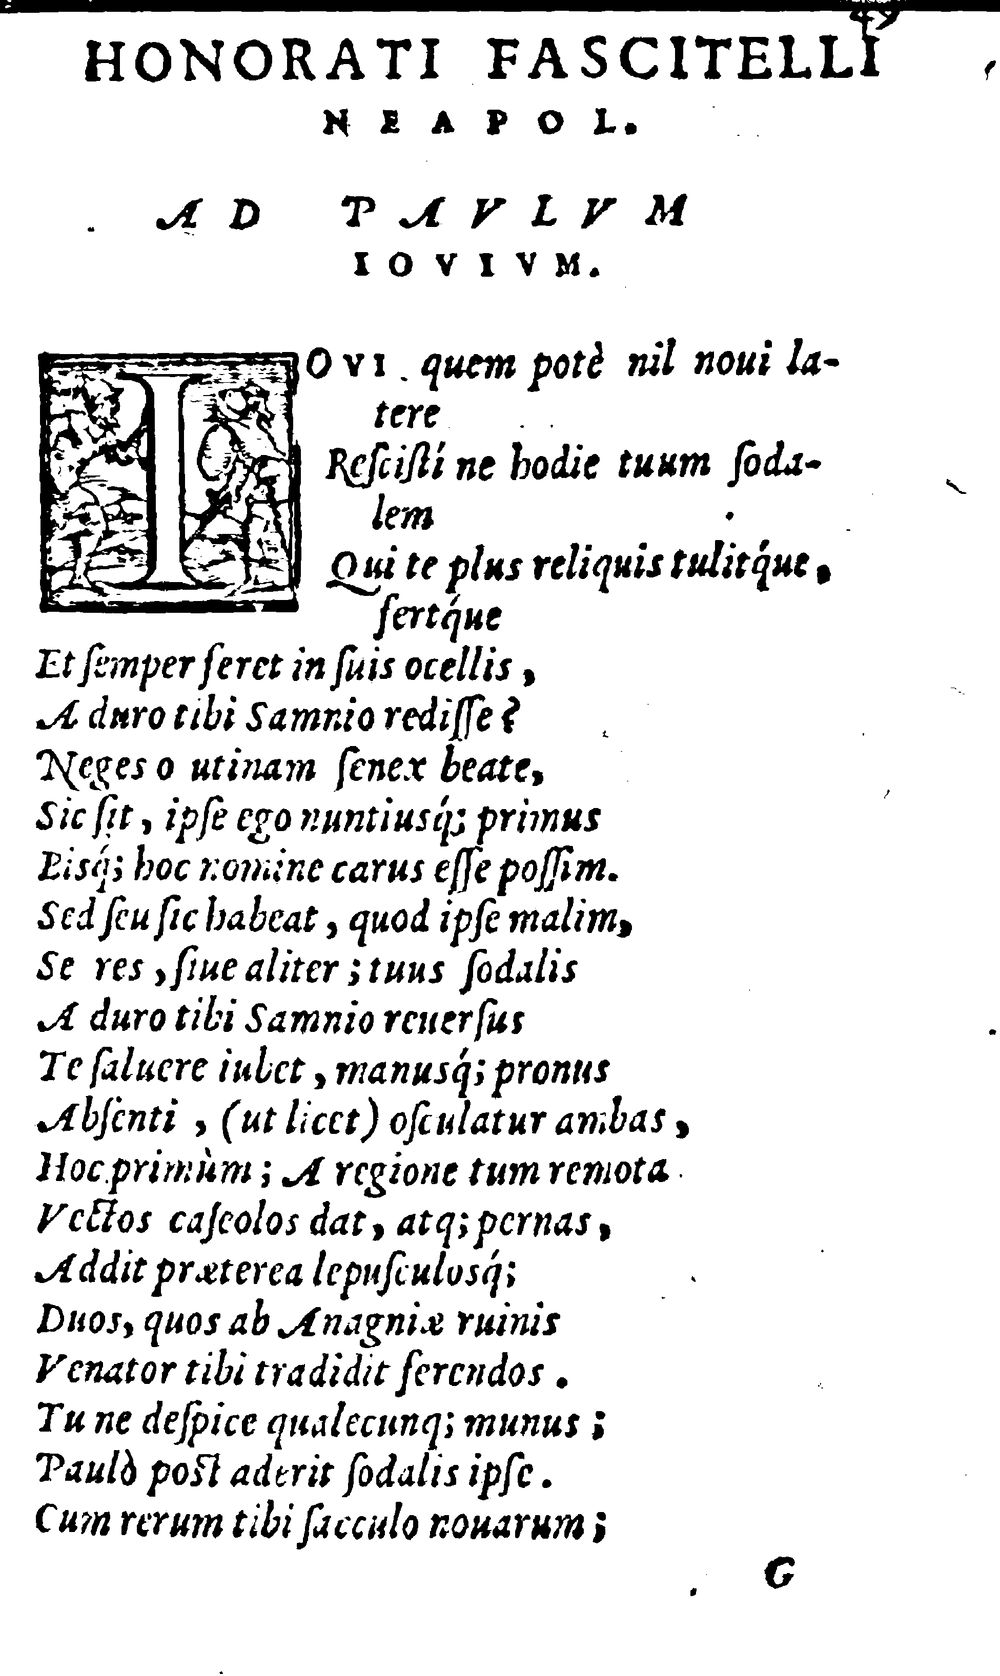 49
HONORATI FASCITELLI
NEAPOL.
AD PAVLVM
IOVIVM.
IOVI quem potè nil noui la-
tere
Resciſtí ne hodie tuum ſoda-
lem
Qui te plus reliquis tulitq́ue,
fertq́ue
Et ſemper feret in ſuis ocellis,
A duro tibi Samnio rediſſe?
Neges o utinam ſenex beate,
Sic ſit, ipſe ego nuntiusq́; primus
Eisq́; hoc nomine carus eſſe poſſim.
Sed ſeu ſic habeat, quod ipſe malim,
Se res, ſiue aliter; tuus ſodalis
A duro tibi Samnio reuerſus
Te ſaluere iubet, manusq́; pronus
Abſenti, (ut licet) oſculatur ambas,
Hoc primùm; A regione tum remota
Vectos caſeolos dat, atq; pernas,
Addit præterea lepuſculosq́;
Duos, quos ab Anagniæ ruinis
Venator tibi tradidit ferendos.
Tu ne deſpice qualecunq; munus;
Paulò poſt aderit ſodalis ipſe.
Cum rerum tibi ſacculo nouarum;
G